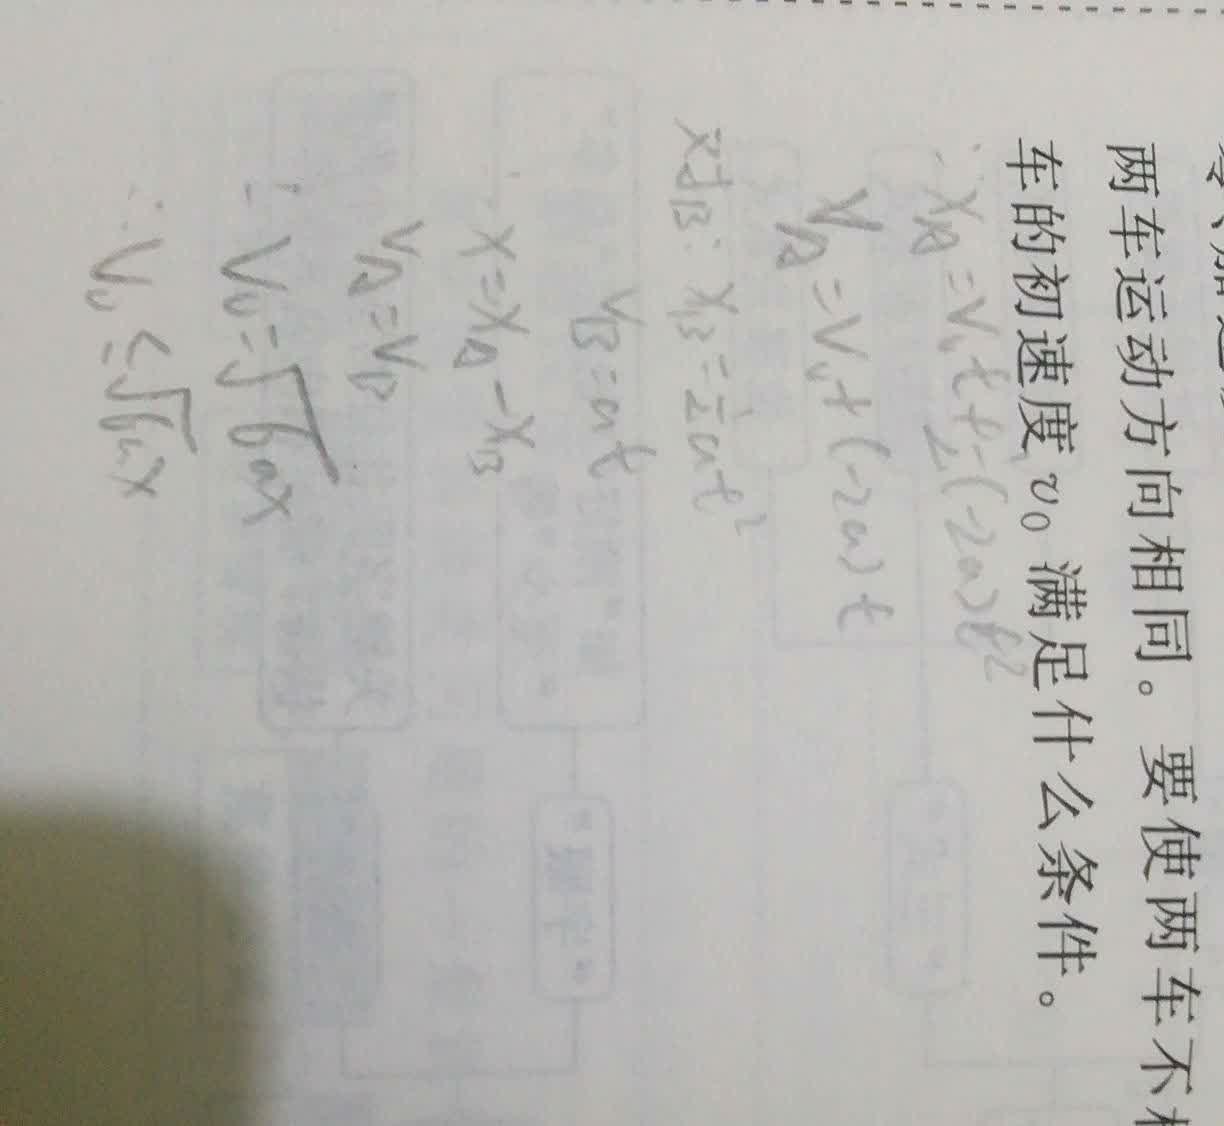 两车运动方向相同。要使两车不
车的初速度v₀满足什么条件。
∴ x_A = v₀t + ½(-2a)t²
v_A = v₀ + (-2a)t
对B: x_B = ½at²
v_B = at
x = x_A - x_B
v_A = v_B
∴ v₀ = √6ax
∴ v₀ ≤ √6ax